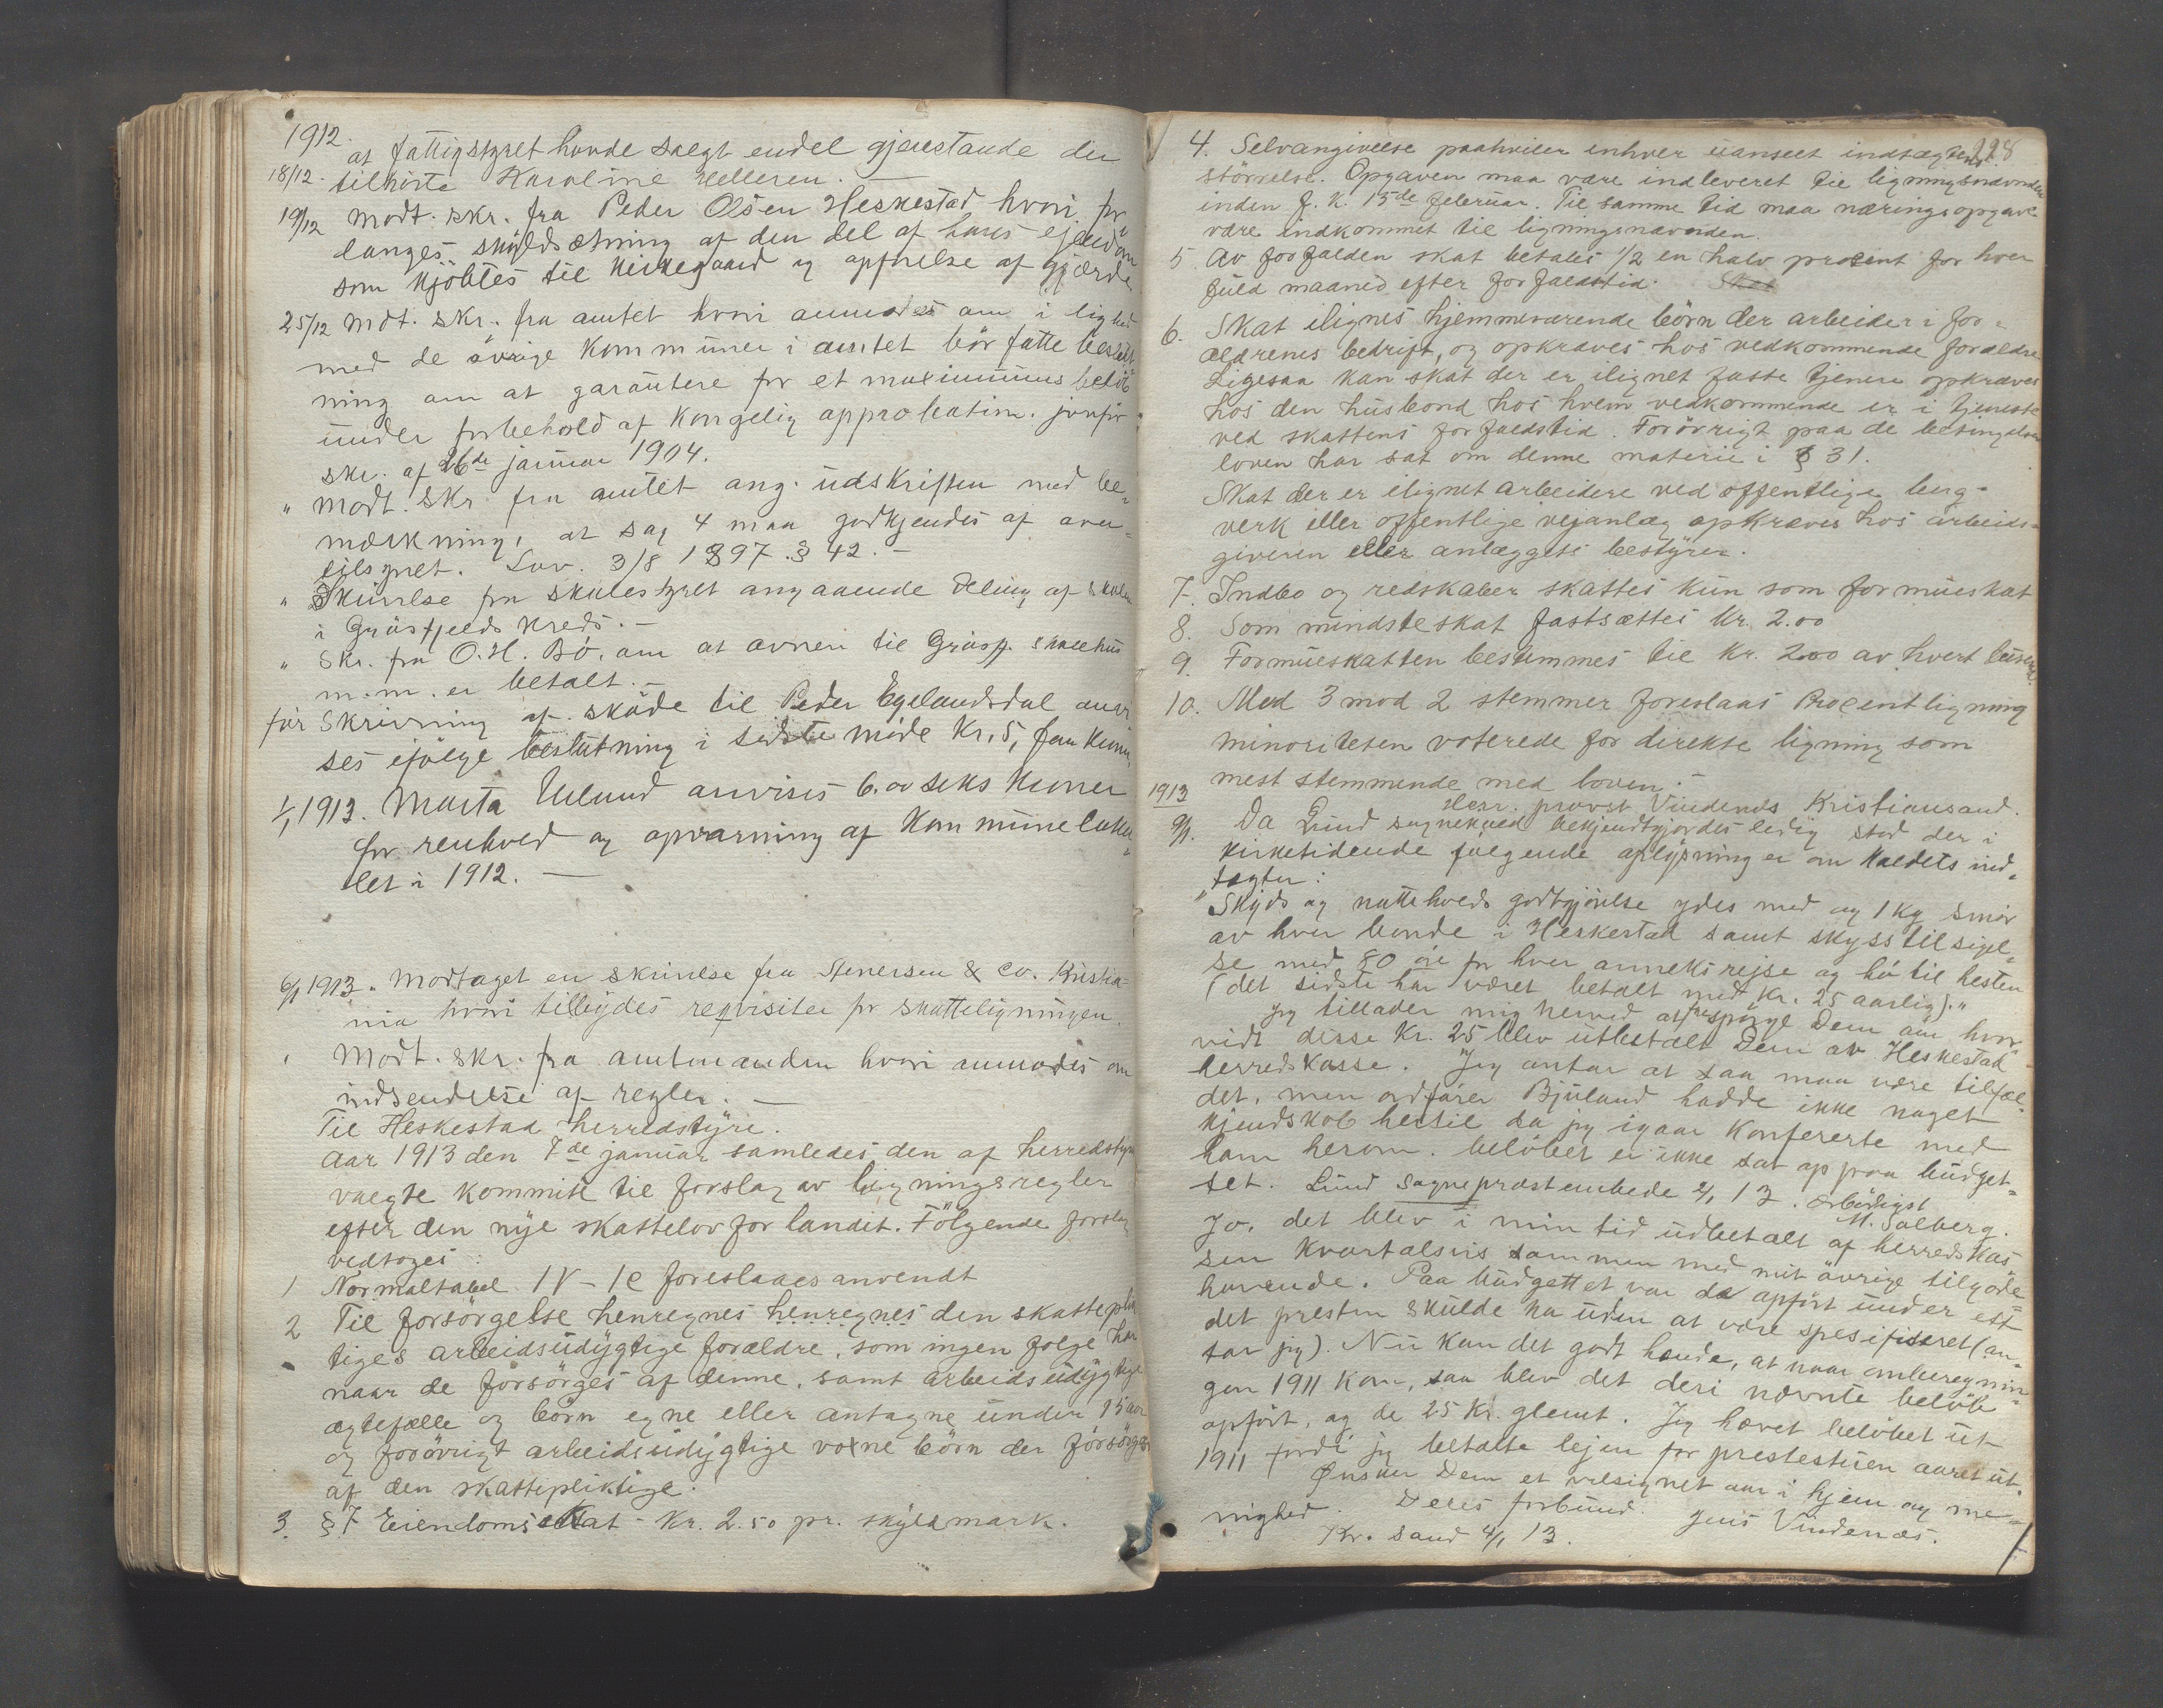 1912.
at fattigstyret havde solgt endel gjenstande der
18/12. tilhörte Karoline Helleren.
19/12 Modt. skr. fra Peder Olsen Heskestad hvori for
langes skyldsætning af den del af hans ejendom
som kjöbtes til Kirkegaard og opförelse af gjærde
25/12 Mdt. skr. fra amtet hvori anmodes om i lighed
med de övrige Kommuner i amtet bör fatte beslut
ning om at garantere for et maximums belöb
under forbehold af Kongelig approbation. jvnför
skr. af 26de januar 1904.
" Modt. skr. fra amtet ang. udskriften med be-
mærkning, at sag 4 maa godkjendes af over
tilsynet. Lov. 3/8 1897. § 42. -
" Skrivelse fra skolestyret angaaende deling af skolen
i Gyåsfjelds Kreds. -
" Skr. fra O. H. Bö. om at ovnen til Gråsfj. skolehus
m.m. er betalt. -
för Skrivning af sköde til Peder Egelandsdal anvi
ses ifölge beslutning i sidste möde Kr. 5, fem Kroner.
1/1 1913. Marta Ueland anvises 6.00 seks Kroner
for renhold og opvarming af Kommunelokal-
let i 1912. -
6/1 1913 " Modtaget en skrivelse fra Stenersen & Co. Kristia-
nia hvori tilbydes reqvisiter for skatteligningen.
" Modt. skr. fra amtmanden hvori anmodes om
indsendelse af regler. -
Til Heskestad herredstyre.
Aar 1913 den 7de januar samledes den af herredsstyret
valgte kommite til forslag av ligningsregler
efter den nye skattelov for landet. Fölgende forslag
vedtoges:
1 Normaltabel IV - 1e foreslaaes anvendt
2 Til forsörgelse henregnes henregnes den skatteplik
tiges arbeidsudygtige forældre, som ingen folge har
naar de forsörges af denne, samt arbeidsudygtige
ægtefælle og börn egne eller antagne under 15 aar
og forövrigt arbeidsudygtige voxne börn der forsörges
af den skattepliktige.
3. § 7 Eiendomsskat - Kr. 2.50 pr. skyldmark.
228
4. Selvangivelse paahviler enhver uanseet indtægtens
störrelse. Opgaven maa være indleveret til ligningsnævnden
inden f. k. 15de februar. Til samme tid maa næringsopgave
være indkommet til ligningsnævnden.
5 Av forfalden skat betales 1/2 en halv procent for hver
fuld maaned efter forfaldstid. Skat
6. Skat ilignes hjemmeværende börn der arbeider i for-
ældrenes bedrift, og opkræves hos vedkommende forældre
Ligesaa kan skat der er ilignet faste tjenere opkræves
hos den husbond hos hvem vedkommende er i tjeneste
ved skattens forfaldstid. Forövrigt paa de betingelser
loven har sat om denne materie i § 31.
Skat der er ilignet arbeidere ved offentlige berg-
verk eller offentlige veianlæg opkræves hos arbeids-
giveren eller anlæggets bestyrer.
7. Indbo og redskaber skattes kun som formueskat
8. Som mindsteskat fastsættes Kr. 2.00
9. Formueskatten bestemmes til Kr. 2.00 av hvert tusend.
10. Med 3 mod 2 stemmer foreslaas Procentligning
minoriteten voterede for direkte ligning som
mest stemmende med loven. -
1913 Herr. provst Vindenes Kristiansand.
9/1. Da Lund sognekald bekjendtgjordes ledig stod der i
Kirketidende fölgende oplysninger om Kaldets ind-
tægter:
"Skyds og natteholds godtgjörelse ydes med og 1 kg smör
av hver bonde i Heskestad samt skyss tilsigel-
se med 80 öre for hver anneksrejse og hö til hesten
(det sidste har været betalt med Kr. 25 aarlig)."
Jeg tillader mig herved at forespörge Dem om hvor
vidt disse Kr. 25 blev utbetalt Dem av Heskestad
herredskasse. Jeg antar at saa maa være tilfæl-
det, men ordförer Bjuland hadde ikke noget
Kjendskab hertil da jeg igaar Konfererte med
ham herom. Belöbet er ikke sat op paa budget-
tet. Lund Sogneprestembede 2/1 13. Ærbödigst
M. Solberg.
Jo. det blev i min tid udbetalt af herredskas-
sen Kvartalsvis sammen med mit övrige tilgode
havende. Paa budgettet var da opfört under ett
det presten skulde ha uden at være spesifiseret (an-
tar jeg). Nu kan det godt hænde, at naar omberegnin-
gen 1911 kom, saa blev det deri nævnte belöb
opfört, og de 25 kr. glemt. Jeg hævet belöbet ut
1911 fordi jeg betalte lejen for prestestuen aaret ut.
Önsker Dem et velsignet aar i hjem og me-
nighed. Deres forbund. Jens Vindenes.
Kr. sand 4/1 13.